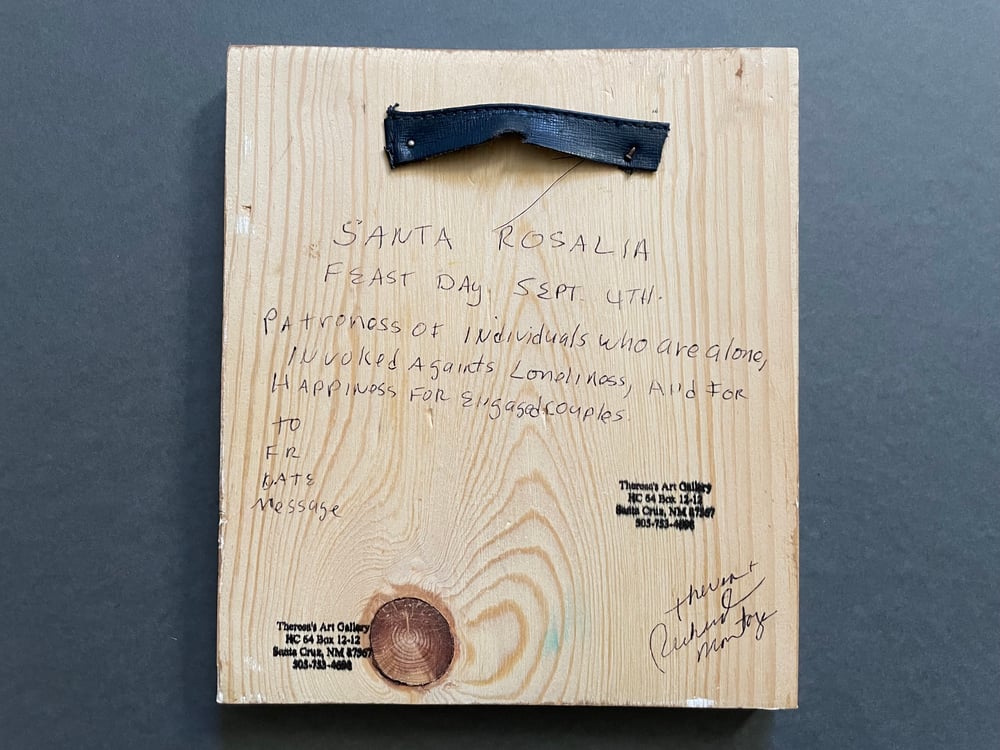 SANTA ROSALIA
FEAST DAY. SEPT. 4TH.
PAtroness OF INdividuals who are alone,
INvoked Againts Loneliness, And FOR
HAPPINESS FOR Engaged couples.
TO
FR
DATE
Message
Theresa's Art Gallery
HC 64 Box 12-12
Santa Cruz, NM 87567
505-753-4698
Theresa's Art Gallery
HC 64 Box 12-12
Santa Cruz, NM 87567
505-753-4698
Richard